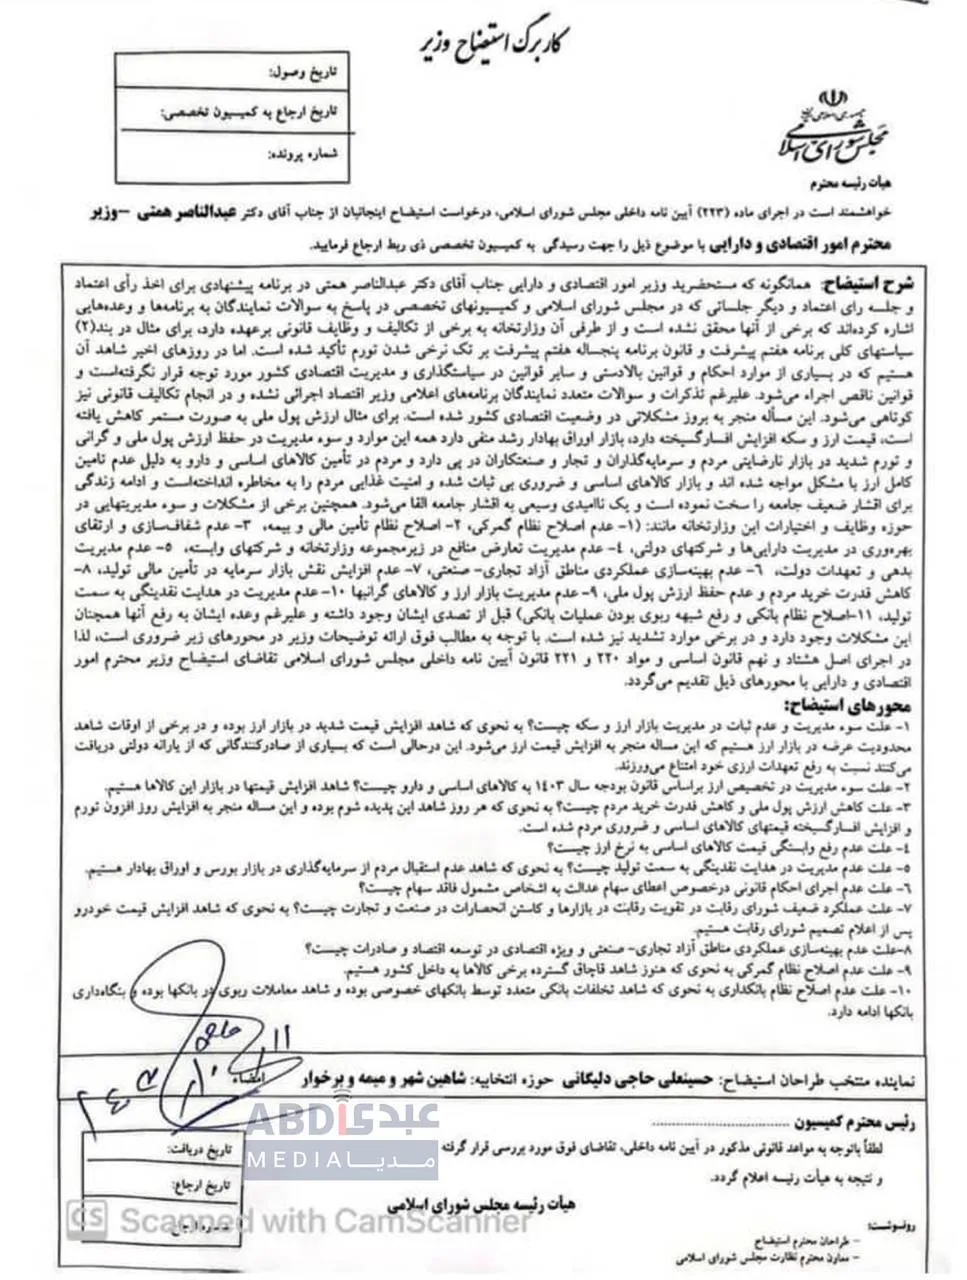 کاربرگ استیضاح وزیر
تاریخ وصول:
تاریخ ارجاع به کمیسیون تخصصی:
شماره پرونده:
جمهوری اسلامی ایران
مجلس شورای اسلامی
هیأت رئیسه محترم
خواهشمند است در اجرای ماده (۲۲۳) آیین نامه داخلی مجلس شورای اسلامی، درخواست استیضاح اینجانبان از جناب آقای دکتر عبدالناصر همتی –وزیر
محترم امور اقتصادی و دارایی با موضوع ذیل را جهت رسیدگی به کمیسیون تخصصی ذی ربط ارجاع فرمایید.
شرح استیضاح: همانگونه که مستحضرید وزیر امور اقتصادی و دارایی جناب آقای دکتر عبدالناصر همتی در برنامه پیشنهادی برای اخذ رأی اعتماد
و جلسه رای اعتماد و دیگر جلساتی که در مجلس شورای اسلامی و کمیسیونهای تخصصی در پاسخ به سوالات نمایندگان به برنامه‌ها و وعده‌هایی
اشاره کرده‌اند که برخی از آنها محقق نشده است و از طرفی آن وزارتخانه به برخی از تکالیف و وظایف قانونی برعهده دارد، برای مثال در بند(۲)
سیاستهای کلی برنامه هفتم پیشرفت و قانون برنامه پنجساله هفتم پیشرفت بر تک نرخی شدن تورم تأکید شده است. اما در روزهای اخیر شاهد آن
هستیم که در بسیاری از موارد احکام و قوانین بالادستی و سایر قوانین در سیاستگذاری و مدیریت اقتصادی کشور مورد توجه قرار نگرفته‌است و
قوانین ناقص اجراء می‌شود. علیرغم تذکرات و سوالات متعدد نمایندگان برنامه‌های اعلامی وزیر اقتصاد اجرائی نشده و در انجام تکالیف قانونی نیز
کوتاهی می‌شود. این مسأله منجر به بروز مشکلاتی در وضعیت اقتصادی کشور شده است. برای مثال ارزش پول ملی به صورت مستمر کاهش یافته
است، قیمت ارز و سکه افزایش افسارگسیخته دارد، بازار اوراق بهادار رشد منفی دارد همه این موارد و سوء مدیریت در حفظ ارزش پول ملی و گرانی
و تورم شدید در بازار نارضایتی مردم و سرمایه‌گذاران و تجار و صنعتکاران در پی دارد و مردم در تأمین کالاهای اساسی و دارو به دلیل عدم تامین
کامل ارز با مشکل مواجه شده اند و بازار کالاهای اساسی و ضروری بی ثبات شده و امنیت غذایی مردم را به مخاطره انداخته‌است و ادامه زندگی
برای اقشار ضعیف جامعه را سخت نموده است و یک ناامیدی وسیعی به اقشار جامعه القا می‌شود. همچنین برخی از مشکلات و سوء مدیریتهایی در
حوزه وظایف و اختیارات این وزارتخانه مانند: (۱- عدم اصلاح نظام گمرکی، ۲- اصلاح نظام تأمین مالی و بیمه، ۳- عدم شفاف‌سازی و ارتقای
بهره‌وری در مدیریت دارایی‌ها و شرکتهای دولتی، ۴- عدم مدیریت تعارض منافع در زیرمجموعه وزارتخانه و شرکتهای وابسته، ۵- عدم مدیریت
بدهی و تعهدات دولت، ۶- عدم بهینه‌سازی عملکردی مناطق آزاد تجاری- صنعتی، ۷- عدم افزایش نقش بازار سرمایه در تأمین مالی تولید، ۸-
کاهش قدرت خرید مردم و عدم حفظ ارزش پول ملی، ۹- عدم مدیریت بازار ارز و کالاهای گرانبها ۱۰- عدم مدیریت در هدایت نقدینگی به سمت
تولید، ۱۱-اصلاح نظام بانکی و رفع شبهه ربوی بودن عملیات بانکی) قبل از تصدی ایشان وجود داشته و علیرغم وعده ایشان به رفع آنها همچنان
این مشکلات وجود دارد و در برخی موارد تشدید نیز شده است. با توجه به مطالب فوق ارائه توضیحات وزیر در محورهای زیر ضروری است، لذا
در اجرای اصل هشتاد و نهم قانون اساسی و مواد ۲۲۰ و ۲۲۱ قانون آیین نامه داخلی مجلس شورای اسلامی تقاضای استیضاح وزیر محترم امور
اقتصادی و دارایی با محورهای ذیل تقدیم می‌گردد.
محورهای استیضاح:
۱- علت سوء مدیریت و عدم ثبات در مدیریت بازار ارز و سکه چیست؟ به نحوی که شاهد افزایش قیمت شدید در بازار ارز بوده و در برخی از اوقات شاهد
محدودیت عرضه در بازار ارز هستیم که این مساله منجر به افزایش قیمت ارز می‌شود. این درحالی است که بسیاری از صادرکنندگانی که از یارانه دولتی دریافت
می‌کنند نسبت به رفع تعهدات ارزی خود امتناع می‌ورزند.
۲- علت سوء مدیریت در تخصیص ارز براساس قانون بودجه سال ۱۴۰۳ به کالاهای اساسی و دارو چیست؟ شاهد افزایش قیمتها در بازار این کالاها هستیم.
۳- علت کاهش ارزش پول ملی و کاهش قدرت خرید مردم چیست؟ به نحوی که هر روز شاهد این پدیده شوم بوده و این مساله منجر به افزایش روز افزون تورم
و افزایش افسارگسیخته قیمتهای کالاهای اساسی و ضروری مردم شده است.
۴- علت عدم رفع وابستگی قیمت کالاهای اساسی به نرخ ارز چیست؟
۵- علت عدم مدیریت در هدایت نقدینگی به سمت تولید چیست؟ به نحوی که شاهد عدم استقبال مردم از سرمایه‌گذاری در بازار بورس و اوراق بهادار هستیم.
۶- علت عدم اجرای احکام قانونی درخصوص اعطای سهام عدالت به اشخاص مشمول فاقد سهام چیست؟
۷- علت عملکرد ضعیف شورای رقابت در تقویت رقابت در بازارها و کاستن انحصارات در صنعت و تجارت چیست؟ به نحوی که شاهد افزایش قیمت خودرو
پس از اعلام تصمیم شورای رقابت هستیم.
۸-علت عدم بهینه‌سازی عملکردی مناطق آزاد تجاری- صنعتی و ویژه اقتصادی در توسعه اقتصاد و صادرات چیست؟
۹- علت عدم اصلاح نظام گمرکی به نحوی که هنوز شاهد قاچاق گسترده برخی کالاها به داخل کشور هستیم.
۱۰- علت عدم اصلاح نظام بانکداری به نحوی که شاهد تخلفات بانکی متعدد توسط بانکهای خصوصی بوده و شاهد معاملات ربوی در بانکها بوده و بنگاه‌داری
بانکها ادامه دارد.
نماینده منتخب طراحان استیضاح: حسینعلی حاجی دلیگانی حوزه انتخابیه: شاهین شهر و میمه و برخوار امضاء
ABDI عبدی
MEDIA مدیا
رئیس محترم کمیسیون ................................
لطفاً باتوجه به مواعد قانونی مذکور در آیین نامه داخلی، تقاضای فوق مورد بررسی قرار گرفته
و نتیجه به هیأت رئیسه اعلام گردد.
هیأت رئیسه مجلس شورای اسلامی
تاریخ دریافت:
تاریخ ارجاع:
شماره ارجاع:
رونوشت:
– طراحان محترم استیضاح
– معاون محترم نظارت مجلس شورای اسلامی
CS Scanned with CamScanner